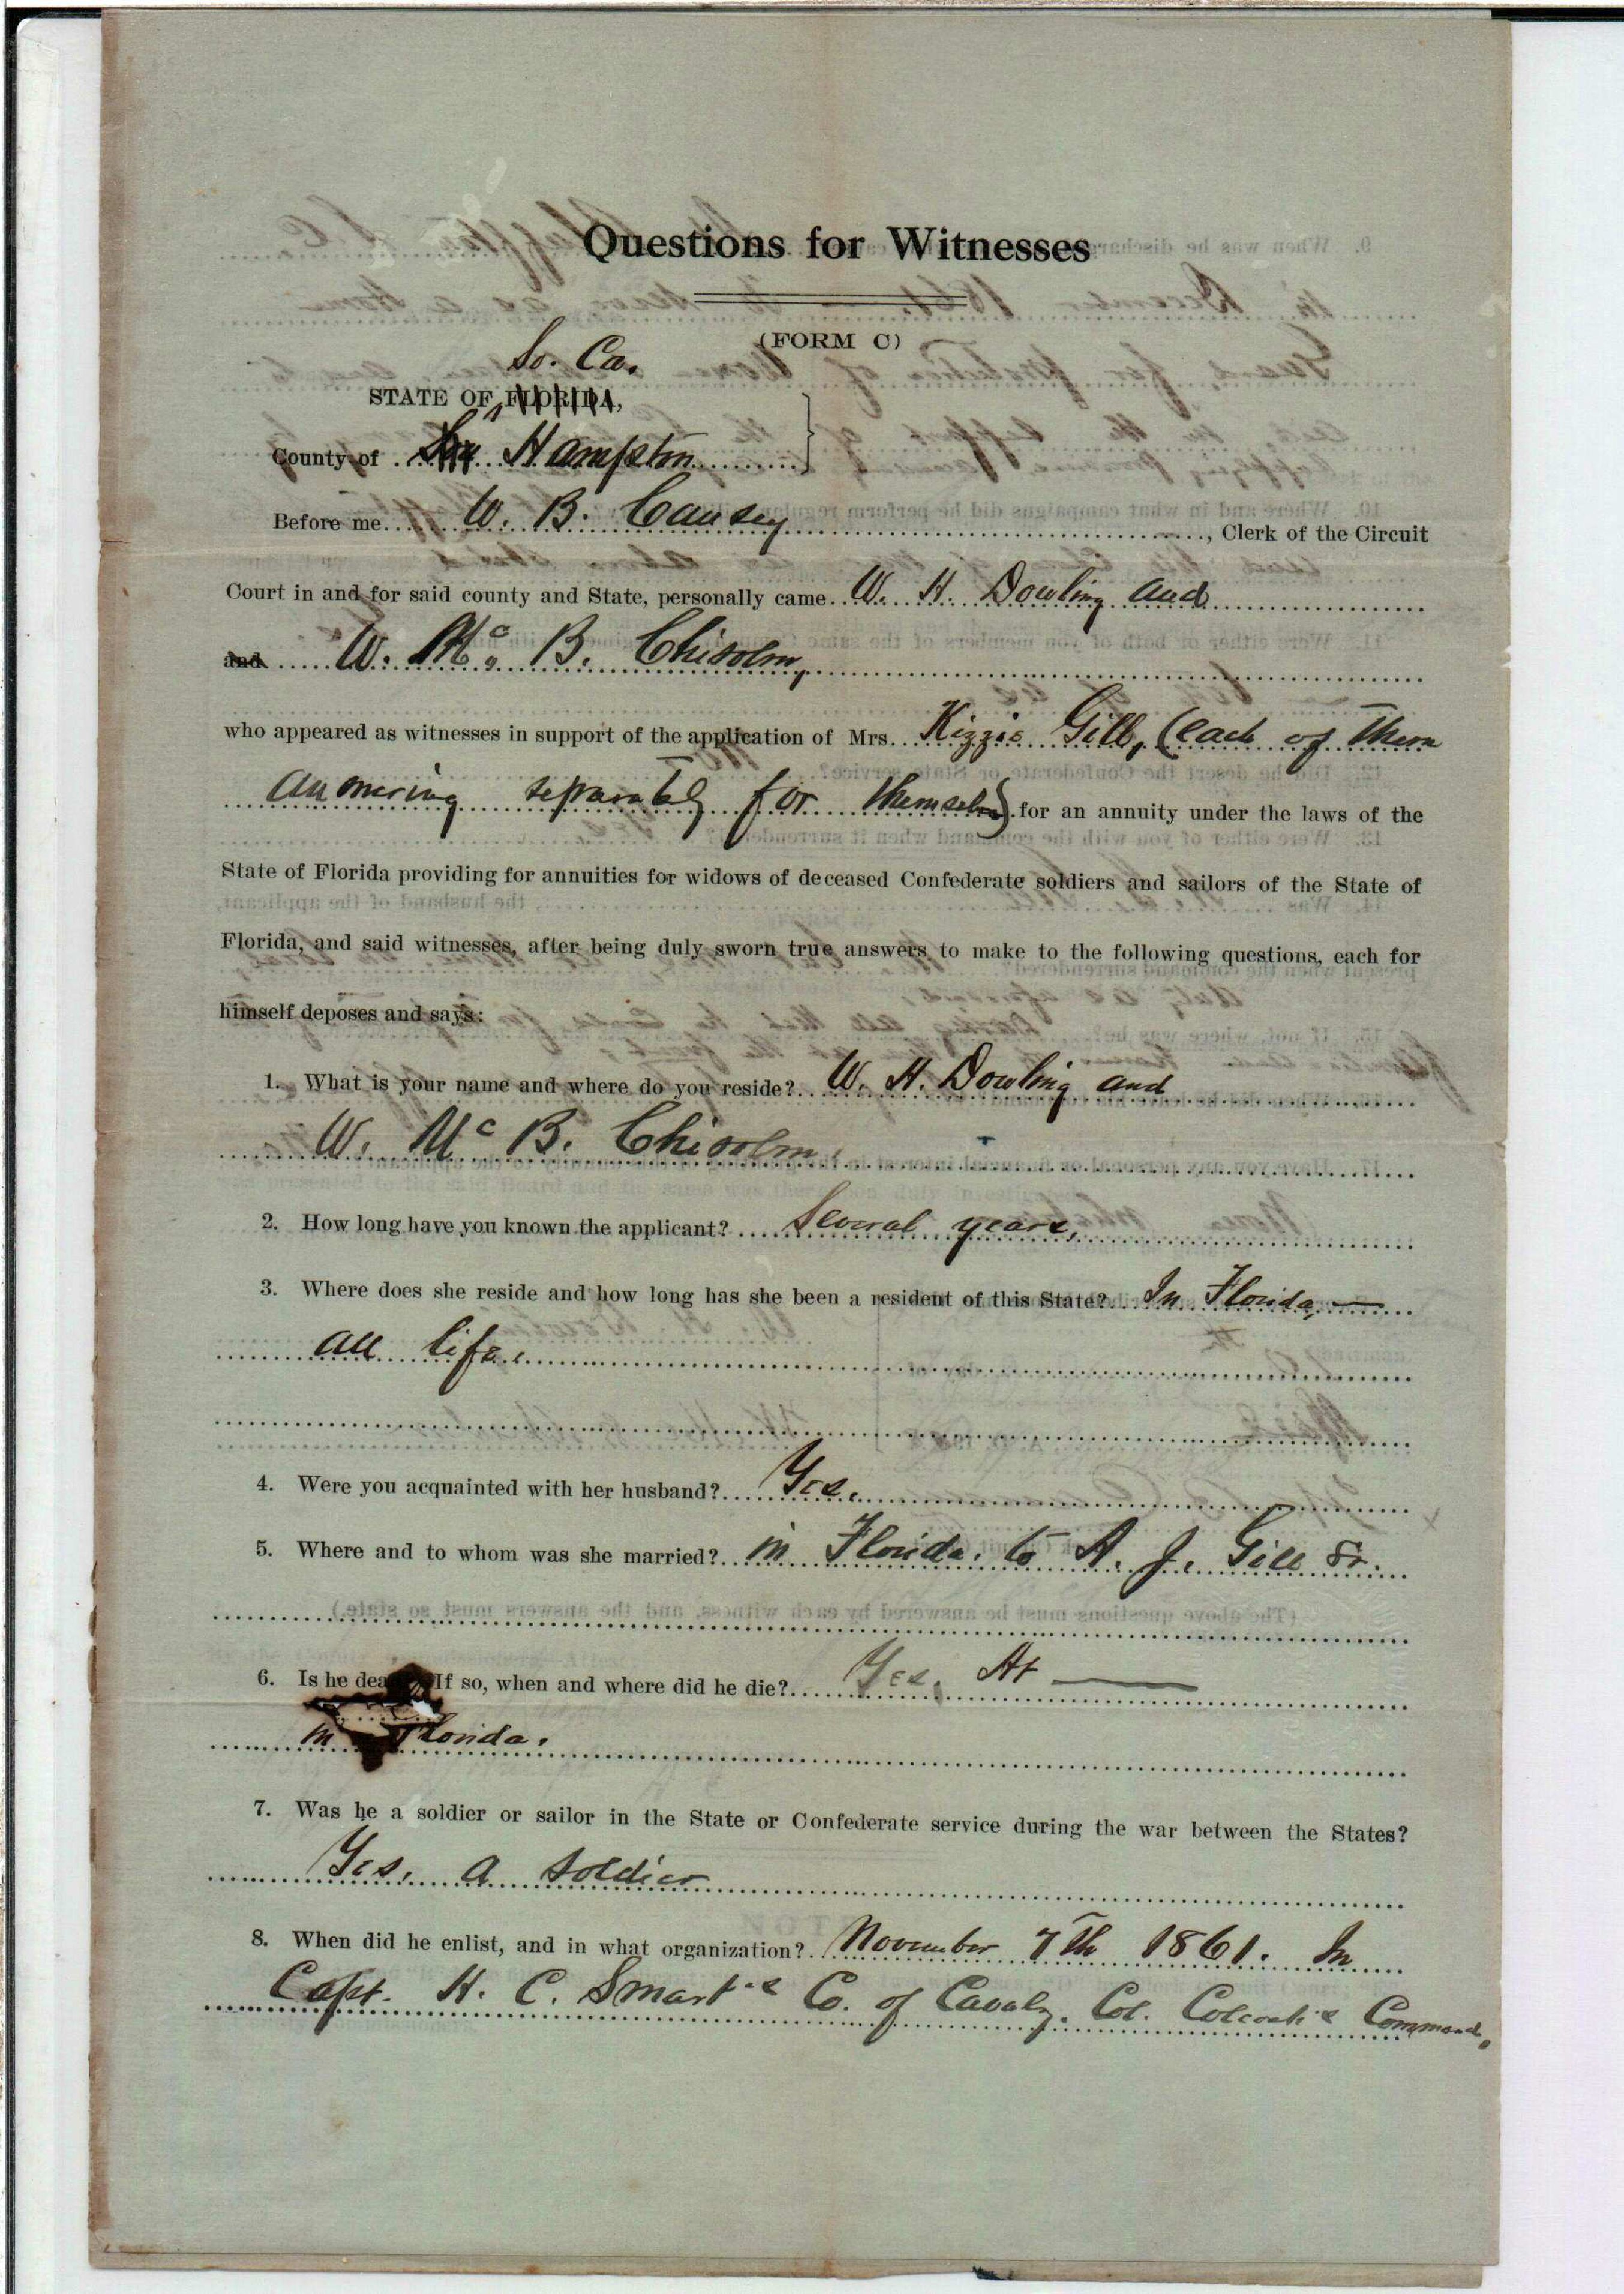 Questions for Witnesses
(FORM C)
So. Ca.
STATE OF FLORIDA,
County of Hampton
Before me W. B. Causey, Clerk of the Circuit
Court in and for said county and State, personally came W. H. Dowling and
and W. Mc. B. Chisolm,
who appeared as witnesses in support of the application of Mrs. Kizzie Gill, (each of them
answering separately for themselves) for an annuity under the laws of the
State of Florida providing for annuities for widows of deceased Confederate soldiers and sailors of the State of
Florida, and said witnesses, after being duly sworn true answers to make to the following questions, each for
himself deposes and says:
1. What is your name and where do you reside? W. H. Dowling and
W. Mc B. Chisolm.
2. How long have you known the applicant? Several years,
3. Where does she reside and how long has she been a resident of this State? In Florida, —
all life.
4. Were you acquainted with her husband? Yes.
5. Where and to whom was she married? in Florida. to A. J. Gill Sr.
6. Is he dead If so, when and where did he die? Yes. At —
in Florida.
7. Was he a soldier or sailor in the State or Confederate service during the war between the States?
Yes. a soldier
8. When did he enlist, and in what organization? November 7th 1861. In
Capt. H. C. Smart's Co. of Cavalry. Col. Colcock's Command.